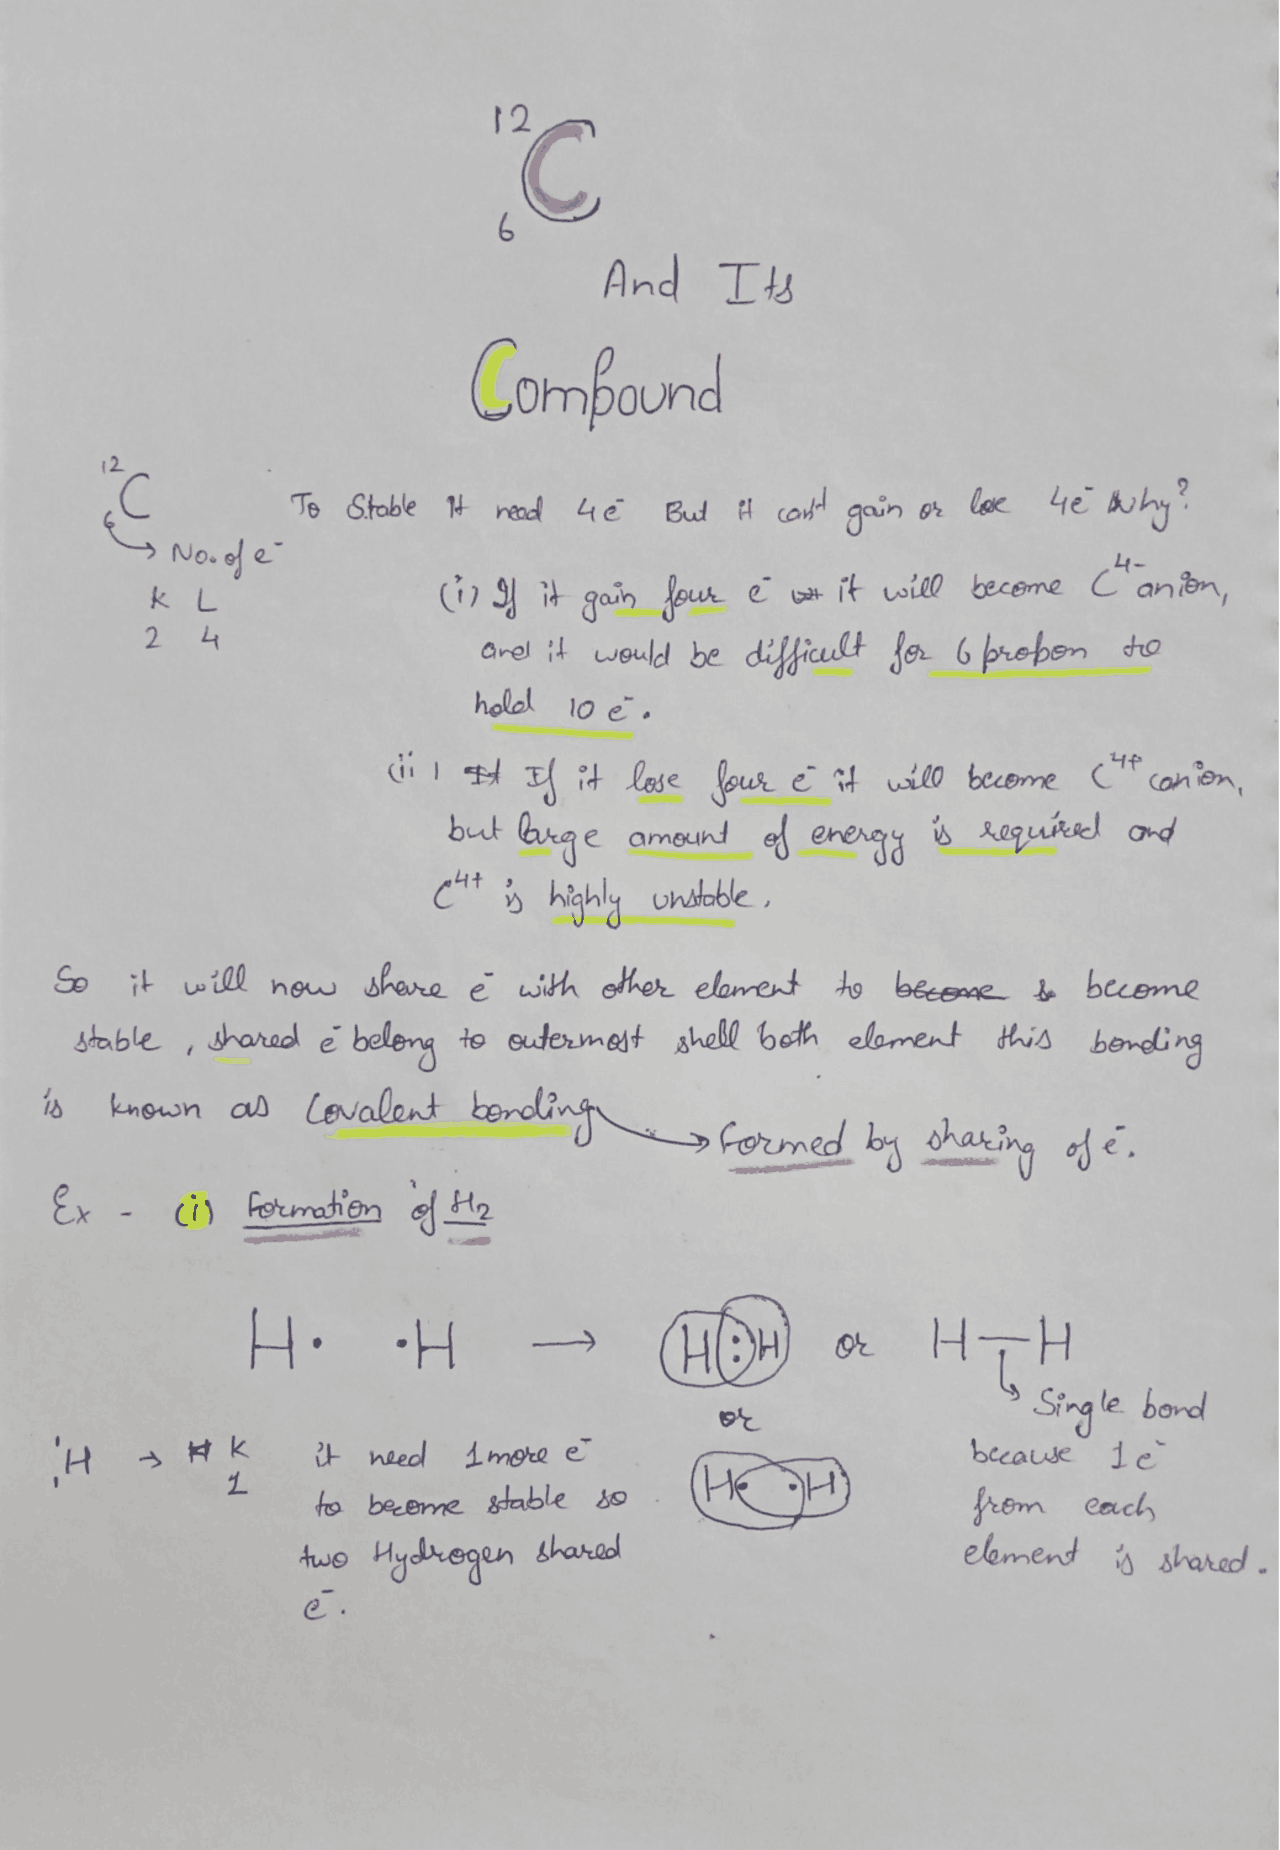 12
C
6
And Its
Compound
12
C
6
To Stable It need 4e⁻ But it can't gain or lose 4e⁻ Why?
→ No. of e⁻
K L
2 4
(i) If it gain four e⁻ it will become C⁴⁻ anion,
and it would be difficult for 6 propon to
hold 10 e⁻.
(ii) If it lose four e⁻ it will become C⁴⁺ canion,
but large amount of energy is required and
C⁴⁺ is highly unstable.
So it will now share e⁻ with other element to become & become
stable, shared e⁻ belong to outermost shell both element this bonding
is known as Covalent bonding → Formed by sharing of e⁻.
Ex - (i) Formation of H₂
H· ·H → H:H or H—H
Single bond
or
H· ·H
because 1 e⁻
from each
element is shared.
¹₁H → K
1
it need 1 more e⁻
to become stable so
two Hydrogen shared
e⁻.